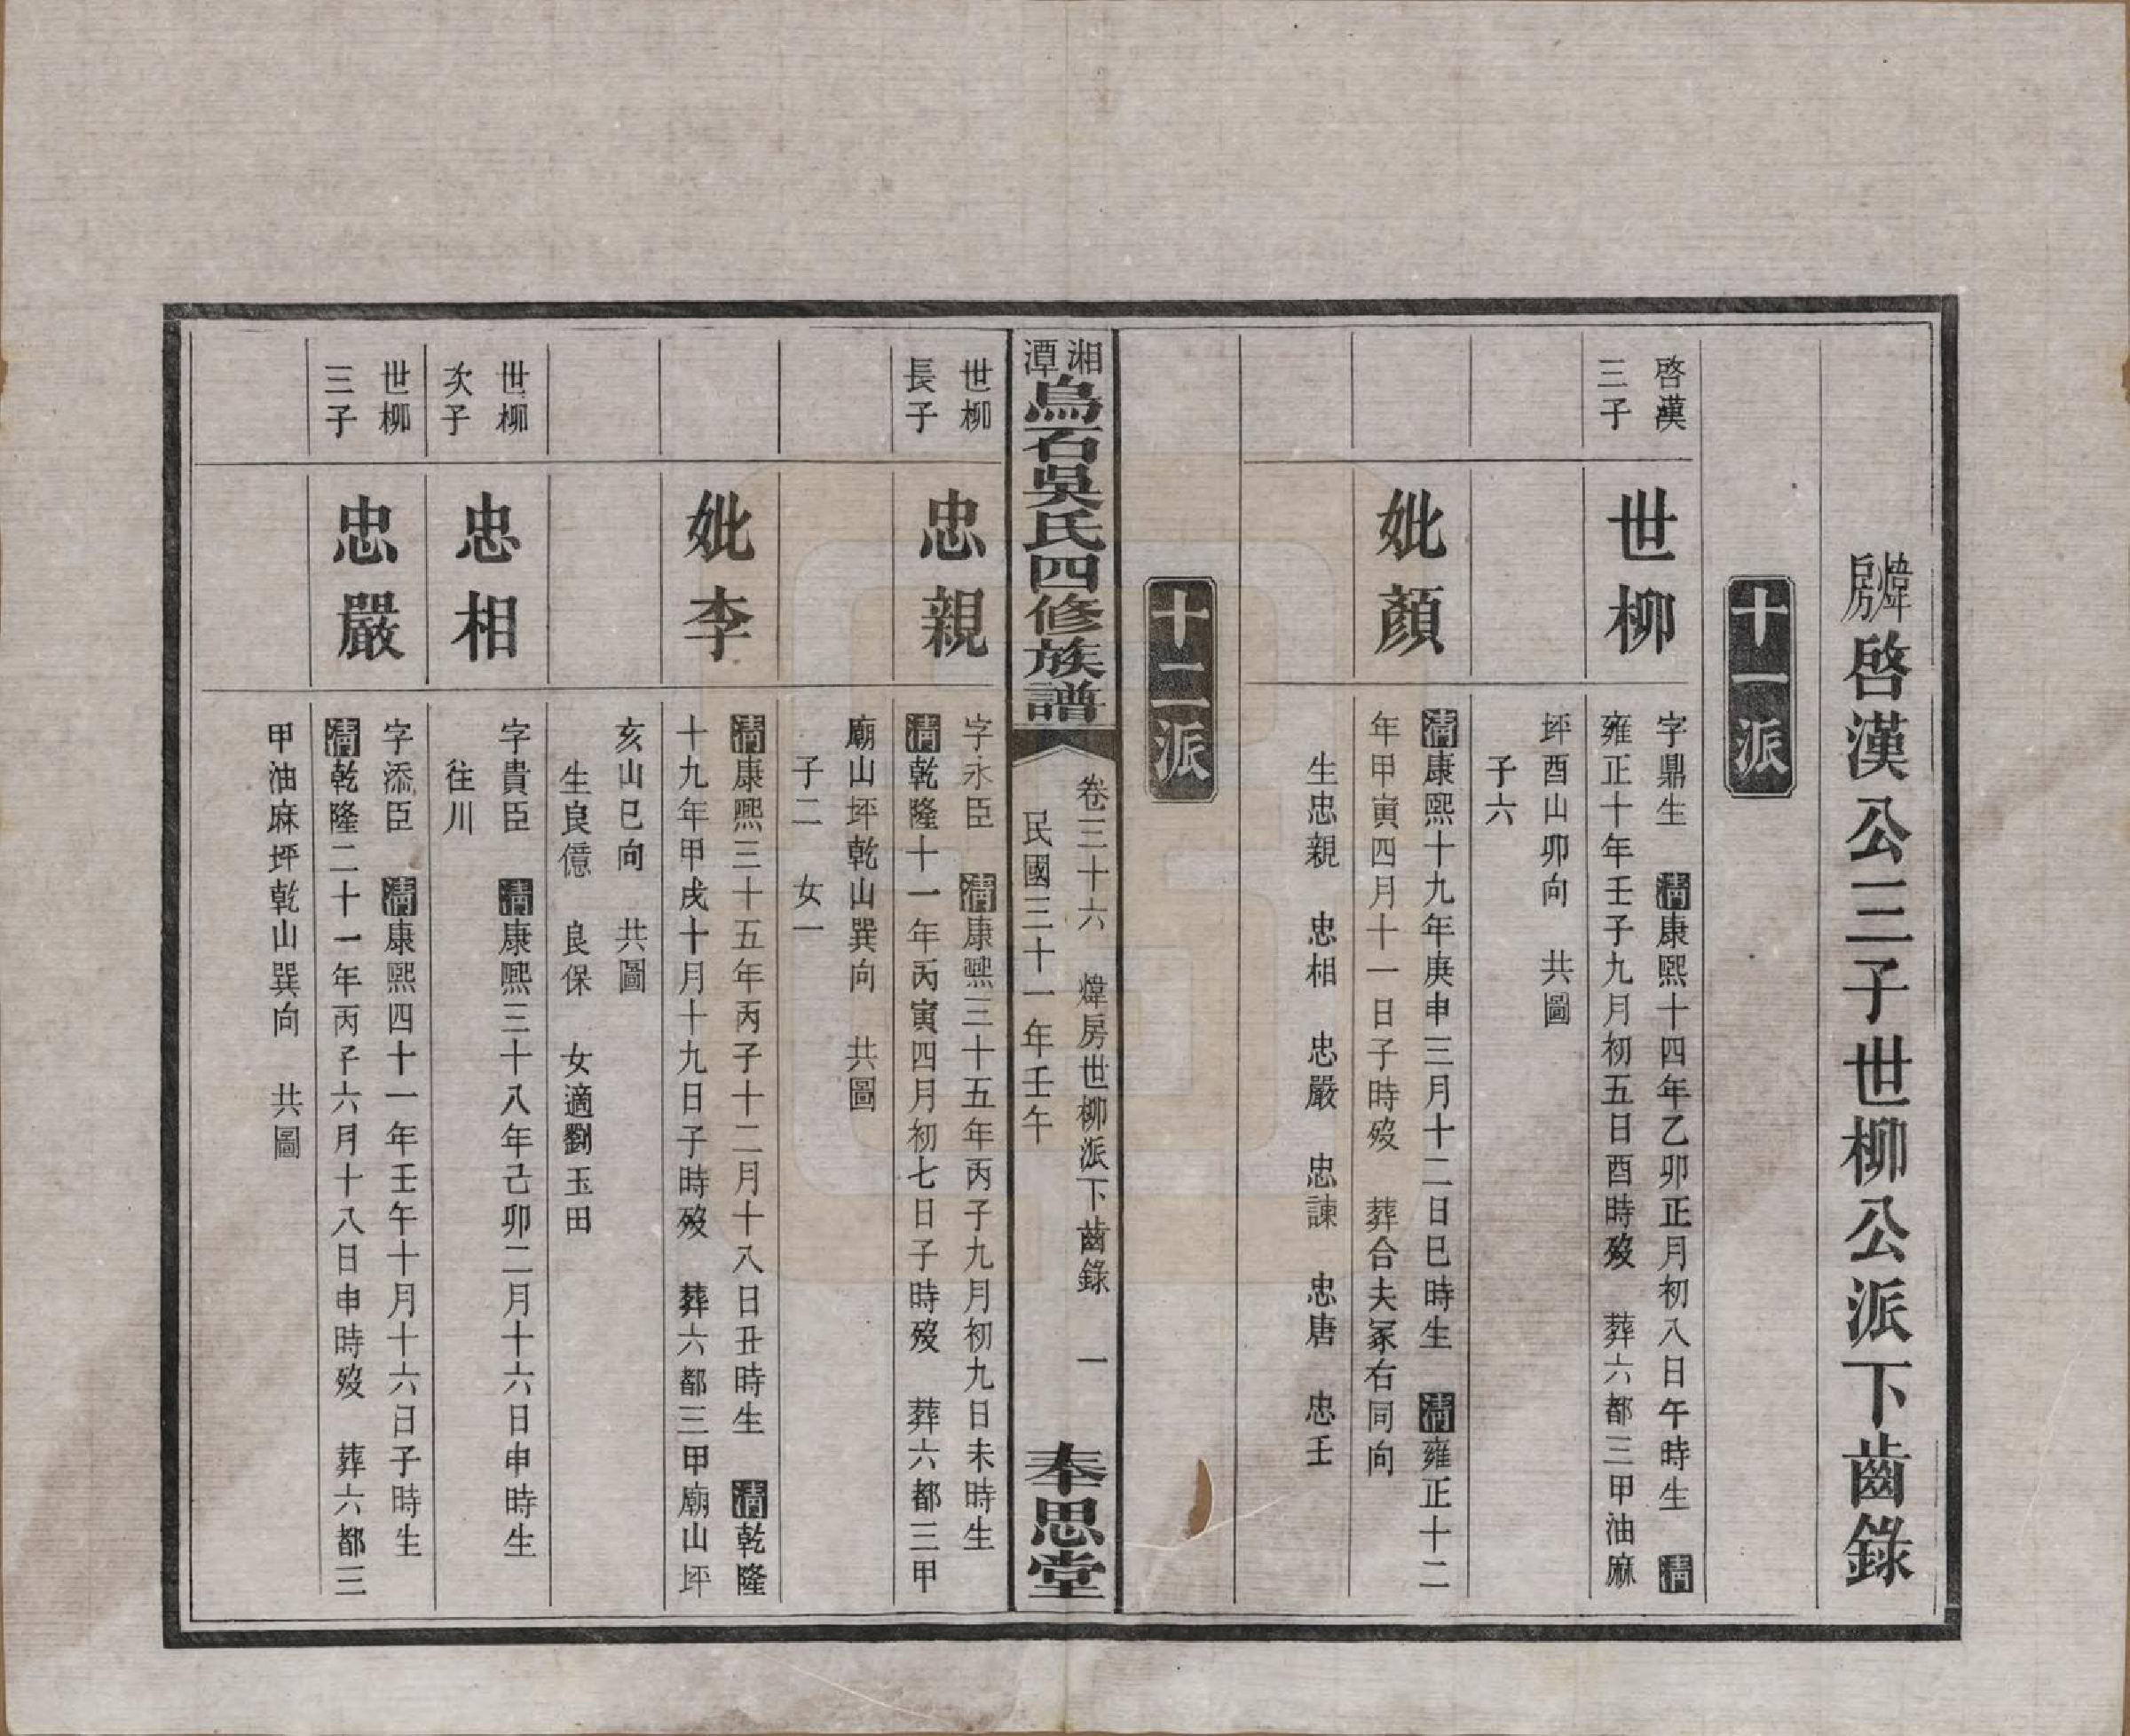 煒房啓漢公三子世柳公派下齒錄
十一派
啓漢
三子
世柳
字鼎生　清康熙十四年乙卯正月初八日午時生　清
雍正十年壬子九月初五日酉時歿　葬六都三甲油麻
坪酉山卯向　共圖
子六
妣顏
清康熙十九年庚申三月十二日巳時生　清雍正十二
年甲寅四月十一日子時歿　葬合夫冢右同向
生忠親　忠相　忠嚴　忠諫　忠唐　忠壬
十二派
湘潭烏石吳氏四修族譜
卷三十六　煒房世柳派下齒錄　一
民國三十一年壬午
奉思堂
世柳
長子
忠親
字永臣　清康熙三十五年丙子九月初九日未時生
清乾隆十一年丙寅四月初七日子時歿　葬六都三甲
廟山坪乾山巽向　共圖
子二　女一
妣李
清康熙三十五年丙子十二月十八日丑時生　清乾隆
十九年甲戌十月十九日子時歿　葬六都三甲廟山坪
亥山巳向　共圖
生良億　良保　女適劉玉田
世柳
次子
忠相
字貴臣　清康熙三十八年己卯二月十六日申時生
往川
世柳
三子
忠嚴
字添臣　清康熙四十一年壬午十月十六日子時生
清乾隆二十一年丙子六月十八日申時歿　葬六都三
甲油麻坪乾山巽向　共圖